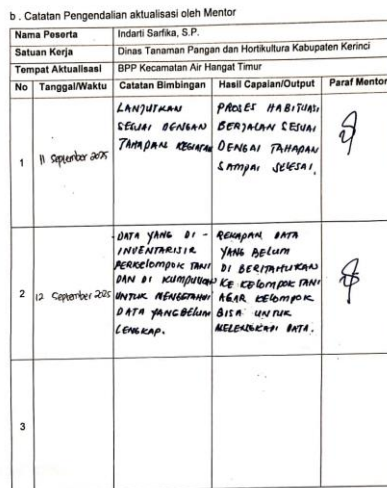 b . Catatan Pengendalian aktualisasi oleh Mentor
Nama Peserta Indarti Sarfika, S.P.
Satuan Kerja Dinas Tanaman Pangan dan Hortikultura Kabupaten Kerinci
Tempat Aktualisasi BPP Kecamatan Air Hangat Timur
No Tanggal/Waktu Catatan Bimbingan Hasil Capaian/Output Paraf Mentor
1 11 September 2025
LANJUTKAN
SESUAI DENGAN
TAHAPAN KEGIATAN
PROSES HABITUASI
BERJALAN SESUAI
DENGAN TAHAPAN
SAMPAI SELESAI.
2 12 September 2025
DATA YANG DI -
INVENTARISIR
PERKELOMPOK TANI
DAN DI KUMPULKAN
UNTUK MENGETAHUI
DATA YANG BELUM
LENGKAP.
REKAPAN DATA
YANG BELUM
DI BERITAHUKAN
KE KELOMPOK TANI
AGAR KELOMPOK
BISA UNTUK
MELENGKAPI DATA.
3